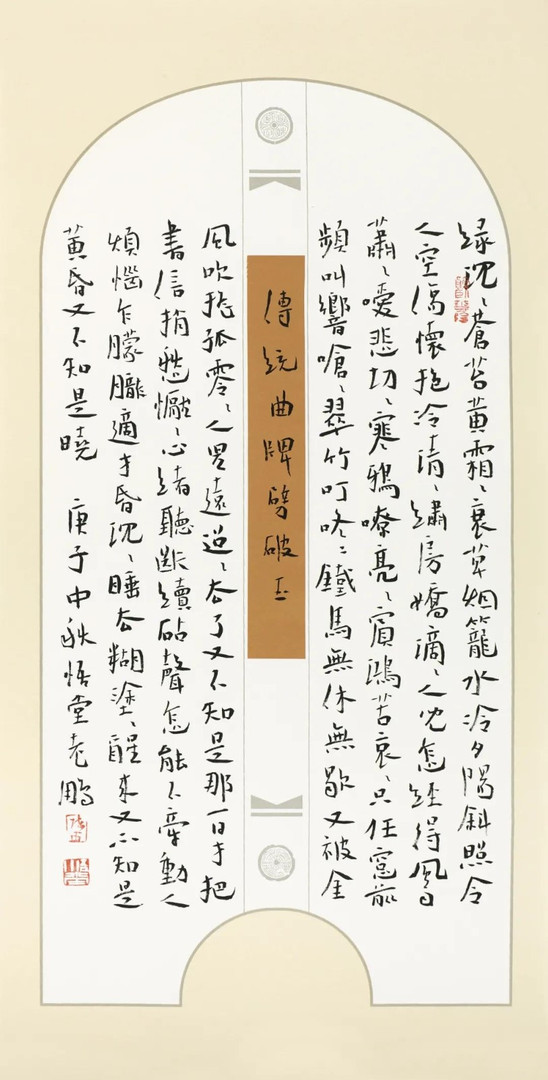 綠沉〻蒼苔黄霜〻衰草烟籠水冷夕陽斜照令
人空傷懷抱冷清〻繡房嬌滴〻人兒怎經得風雨
蕭〻嗳悲切〻寒鴉嘹亮〻賓鴻苦哀〻只在窓前
頻叫響嗆〻翠竹叮咚〻鐵馬無休無歇又被金
傳統曲牌劈破玉
風吹孤零〻人兒遠迢〻去了又不知是那一日才把
書信捎愁懨〻心緒聽斷續砧聲怎能不牽動人
煩惱乍朦朧適才昏沉〻睡去糊塗〻醒來又不知是
黄昏又不知是曉 庚子中秋悟堂老鵬